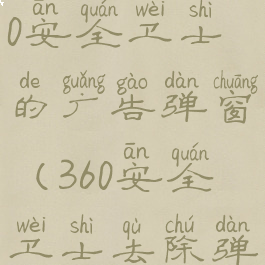 ān quán wèi shì
0安全卫士
de guǎng gào dàn chuāng
的广告弹窗
ān quán
(360安全
wèi shì qù chú dàn
卫士去除弹